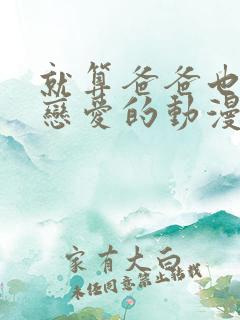 就算爸爸也
戀愛的動漫
家有大向
未任同意禁止转载